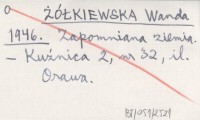 ŻÓŁKIEWSKA Wanda
1946. Zapomniana ziemia.
– Kuźnica 2, nr 32, il.
Orawa.